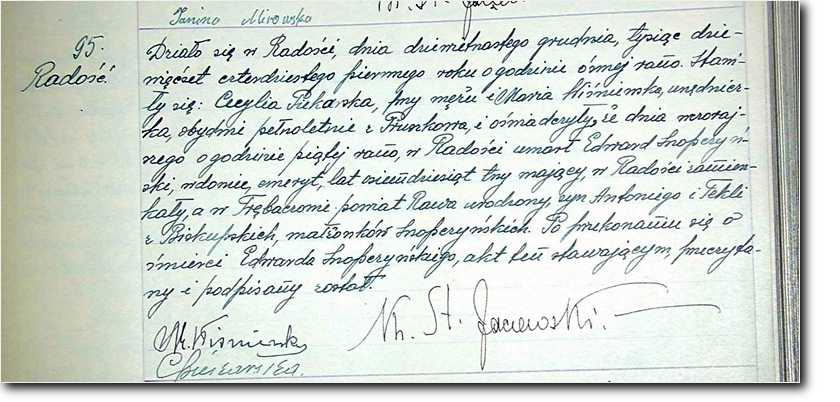 Janina Mirowska
95.
Radość.
Działo się w Radości, dnia dziewiętnastego grudnia, tysiąc dzie-
więćset czterdziestego pierwszego roku o godzinie ósmej rano. Stawi-
ły się: Cecylia Piekarska, przy mężu i Maria Wiśniewska, urzędnicz-
ka, obydwie pełnoletnie z Pruszkowa, i oświadczyły, że dnia wczoraj-
szego o godzinie piątej rano, w Radości umarł Edward Snopczyń-
ski, wdowiec, emeryt, lat osiemdziesiąt trzy mający, w Radości zamiesz-
kały, a w Trębaczewie powiat Rawa urodzony, syn Antoniego i Tekli
z Biskupskich, małżonków Snopczyńskich. Po przekonaniu się o
śmierci Edwarda Snopczyńskiego, akt ten stawającym, przeczyta-
ny i podpisany został.
M. Wiśniewska
Ks. St.